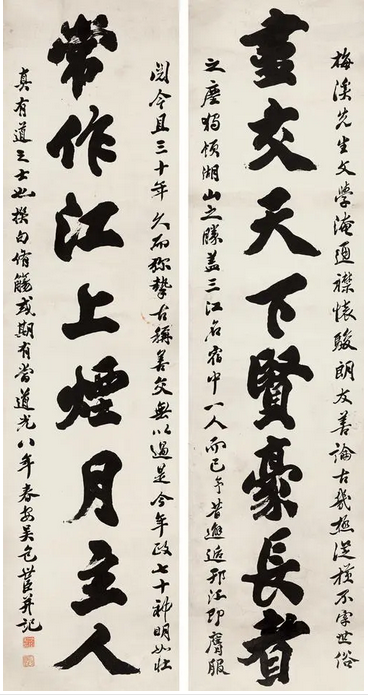 梅溪先生文學淹通襟懷駿朗友善論古幾極從橫不字世俗
盡交天下賢豪長者
之塵獨領湖山之勝蓋三江名宿中一人而已予昔邂逅邗江即膺服
閱今且三十年久而弥摯古稱善交無以過是今年政七十神明如壯
常作江上煙月主人
真有道之士也撰句侑觴或期有當道光八年春安吳包世臣并記